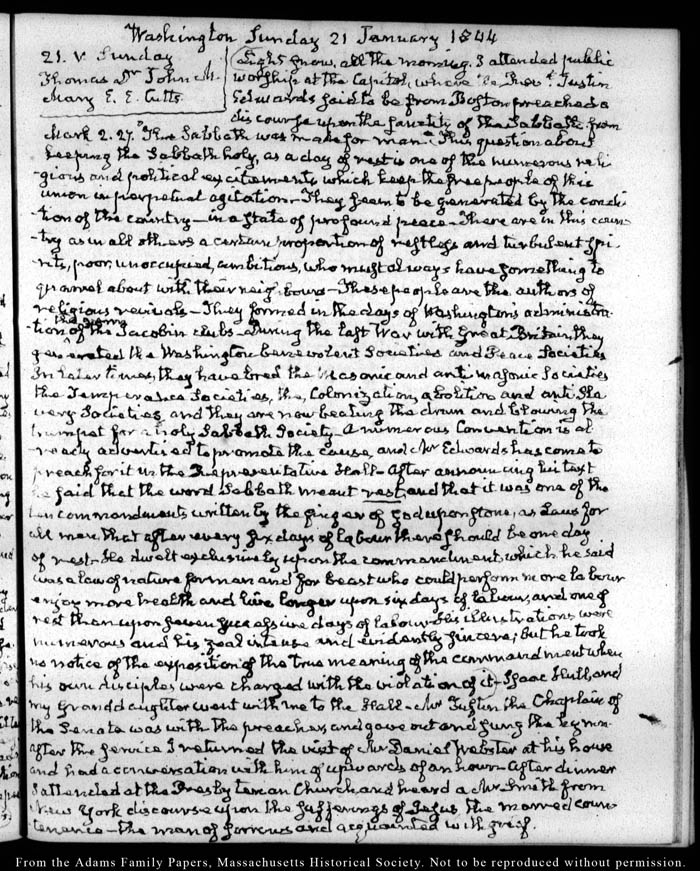 Washington Sunday 21 January 1844
21. V. Sunday
Thomas Dr John M.
Mary E. E. Cutts
Light snow, all the morning. I attended public
worship at the Capitol, where the Revd. Justin
Edwards said to be from Boston preached a
discourse upon the sanctity of the Sabbath from
Mark 2.27. The Sabbath was made for man. This question about
keeping the Sabbath holy, as a day of rest is one of the numerous reli-
gious and political excitements which keep the free people of this
union in perpetual agitation—They seem to be generated by the condi-
tion of the country—in a state of profound peace—There are in this coun-
-try as in all others a certain proportion of restless and turbulent spi-
-rits, poor, unoccupied, ambitious, who must always have something to
quarrel about with their neighbours—These people are the authors of
religious revivals—They formed in the days of Washington's administra-
-tion the germ of the Jacobin clubs—During the last War with Great Britain, they
generated the Washington benevolent Societies and Peace Societies
In later times, they have bred the Masonic and anti masonic Societies
the Temperance Societies, the Colonization, abolition and anti Sla
very Societies, and they are now beating the drum and blowing the
trumpet for a holy Sabbath Society—A numerous Convention is al
-ready advertised to promote the cause, and Mr Edwards has come to
preach for it in the Representative Hall—After announcing his text
he said that the word Sabbath meant rest, and that it was one of the
ten commandments written by the finger of God upon stone, as Laws for
all men, that after every six days of labour there should be one day
of rest—He dwelt exclusively upon the commandment, which he said
was a law of nature for man and for beast who could perform more labour
enjoy more health and live longer upon six days of labour, and one of
rest than upon seven successive days of labour—His illustrations were
numerous and his zeal intense and evidently sincere; but he took
no notice of the exposition of the true meaning of the commandment when
his own disciples were charged with the violation of it—Isaac Hull, and
my Granddaughter went with me to the Hall—Mr Tustin the Chaplain of
the Senate was with the preacher, and gave out and sung the hymn
after the service I returned the visit of Mr Daniel Webster at his house
and had a conversation with him of upwards of an hour—After dinner
I attended at the Presbyterian Church, and heard a Mr Smith from
New York discourse upon the sufferings of Jesus the marred coun-
tenance—the man of sorrows and acquainted with grief.
From the Adams Family Papers, Massachusetts Historical Society. Not to be reproduced without permission.